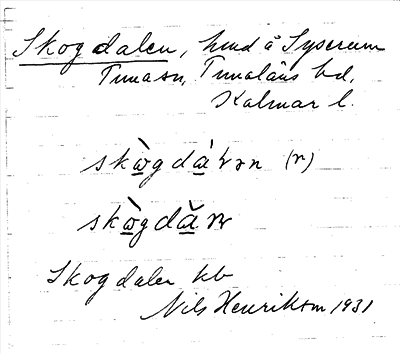 Skogdalen, hmd å Syserum
Tunasn, Tunaläns hd,
Kalmar l.
skò̲gdá̲lən (r)
skò̲gdă̲
Skogdalen kb
Nils Henriksson 1931